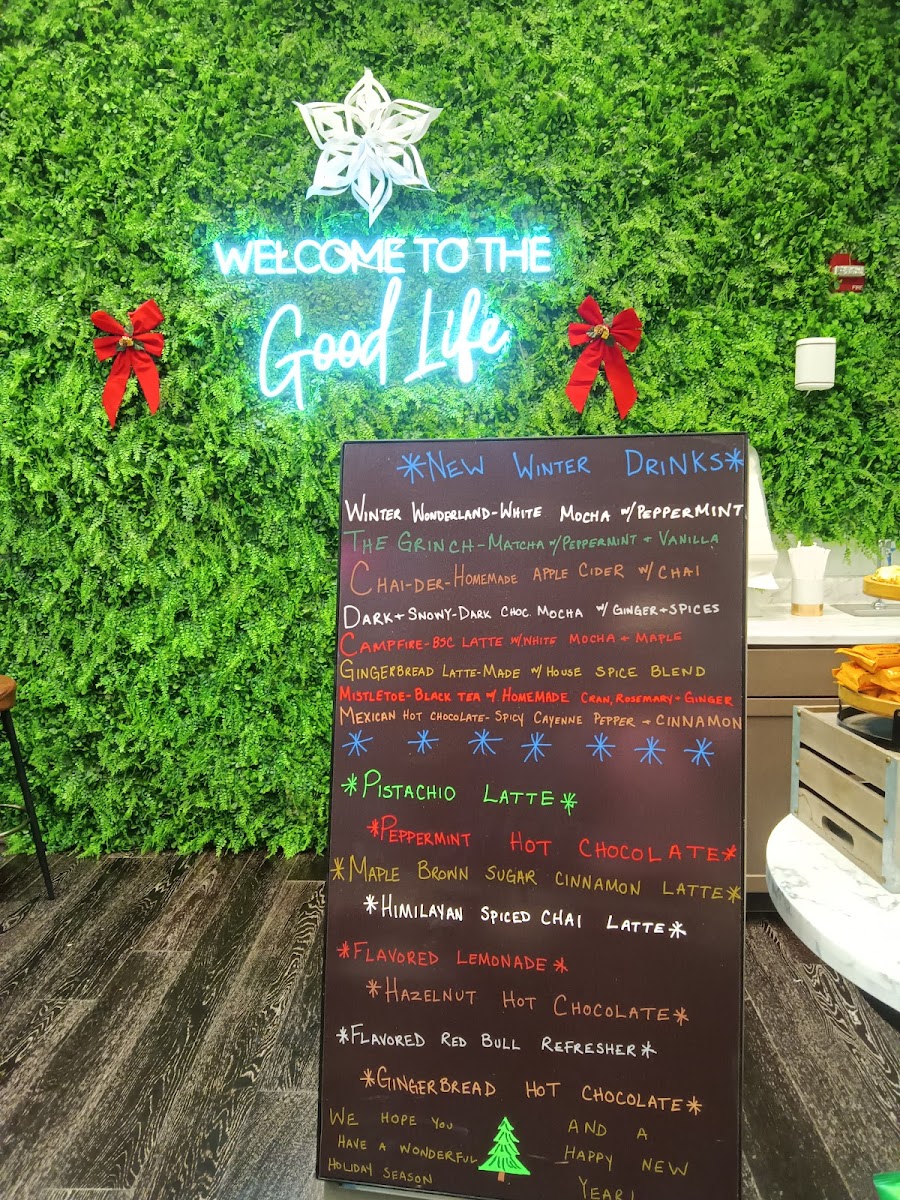 WELCOME TO THE
Good Life
*NEW WINTER DRINKS*
WINTER WONDERLAND-WHITE MOCHA W/PEPPERMINT
THE GRINCH-MATCHA W/PEPPERMINT + VANILLA
CHAI-DER-HOMEMADE APPLE CIDER W/CHAI
DARK + SNOWY-DARK CHOC. MOCHA W/ GINGER+SPICES
CAMPFIRE-BSC LATTE W/WHITE MOCHA + MAPLE
GINGERBREAD LATTE-MADE W/HOUSE SPICE BLEND
MISTLETOE-BLACK TEA W/ HOMEMADE CRAN, ROSEMARY + GINGER
MEXICAN HOT CHOCOLATE-SPICY CAYENNE PEPPER + CINNAMON
*PISTACHIO LATTE*
*PEPPERMINT HOT CHOCOLATE*
*MAPLE BROWN SUGAR CINNAMON LATTE*
*HIMILAYAN SPICED CHAI LATTE*
*FLAVORED LEMONADE*
*HAZELNUT HOT CHOCOLATE*
*FLAVORED RED BULL REFRESHER*
*GINGERBREAD HOT CHOCOLATE*
WE HOPE YOU
HAVE A WONDERFUL
HOLIDAY SEASON
AND A
HAPPY NEW
YEAR!